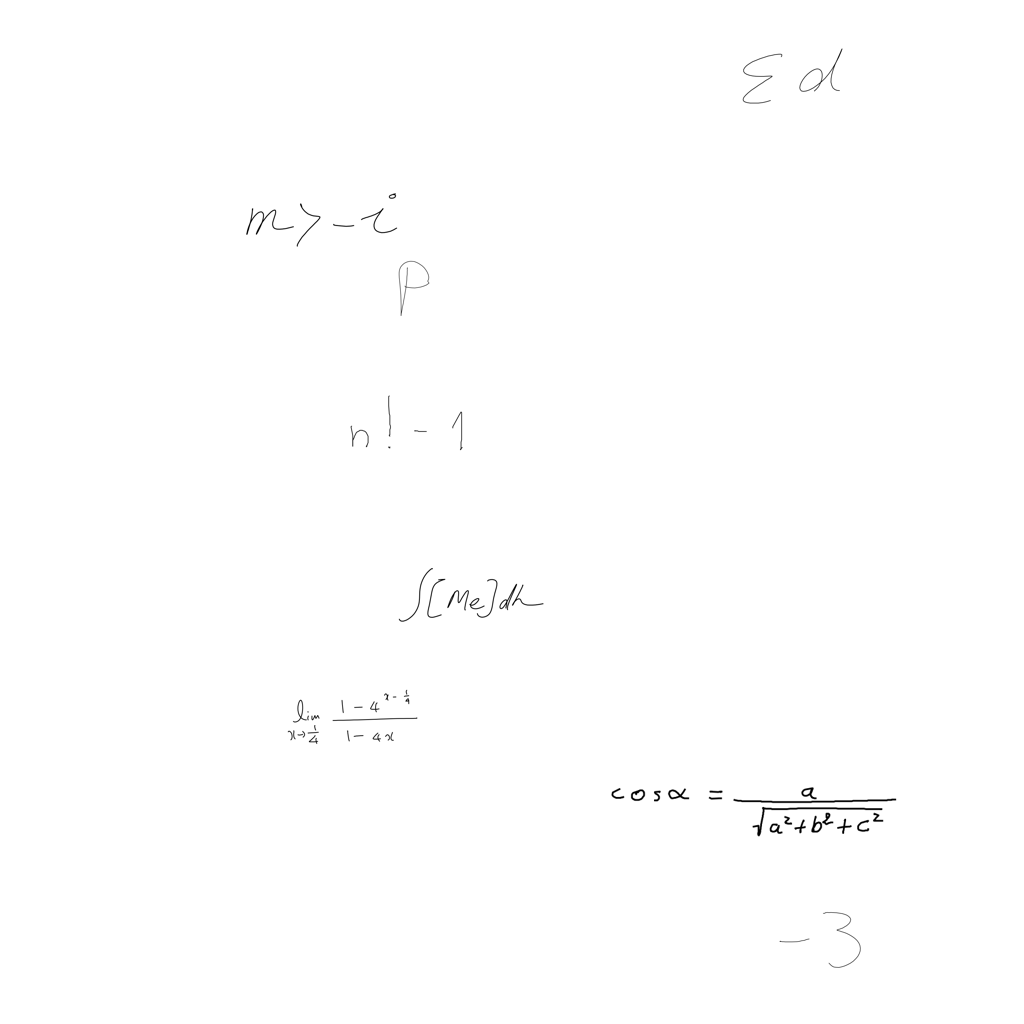 Σd
m>-i
p
n!-1
∫[Me]dh
lim_{x→\frac{1}{4}} \frac{1-4^{x-\frac{1}{4}}}{1-4x}
cosα = \frac{a}{\sqrt{a^2+b^2+c^2}}
-3